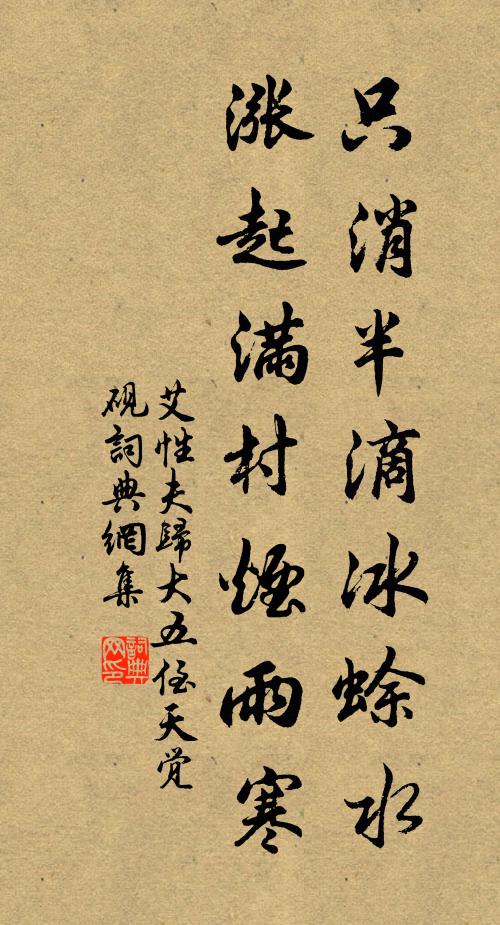 只消半滴冰蜍水
漲起滿村煙雨寒
艾性夫歸大五侄天觉
砚詞典網集
詞典网印